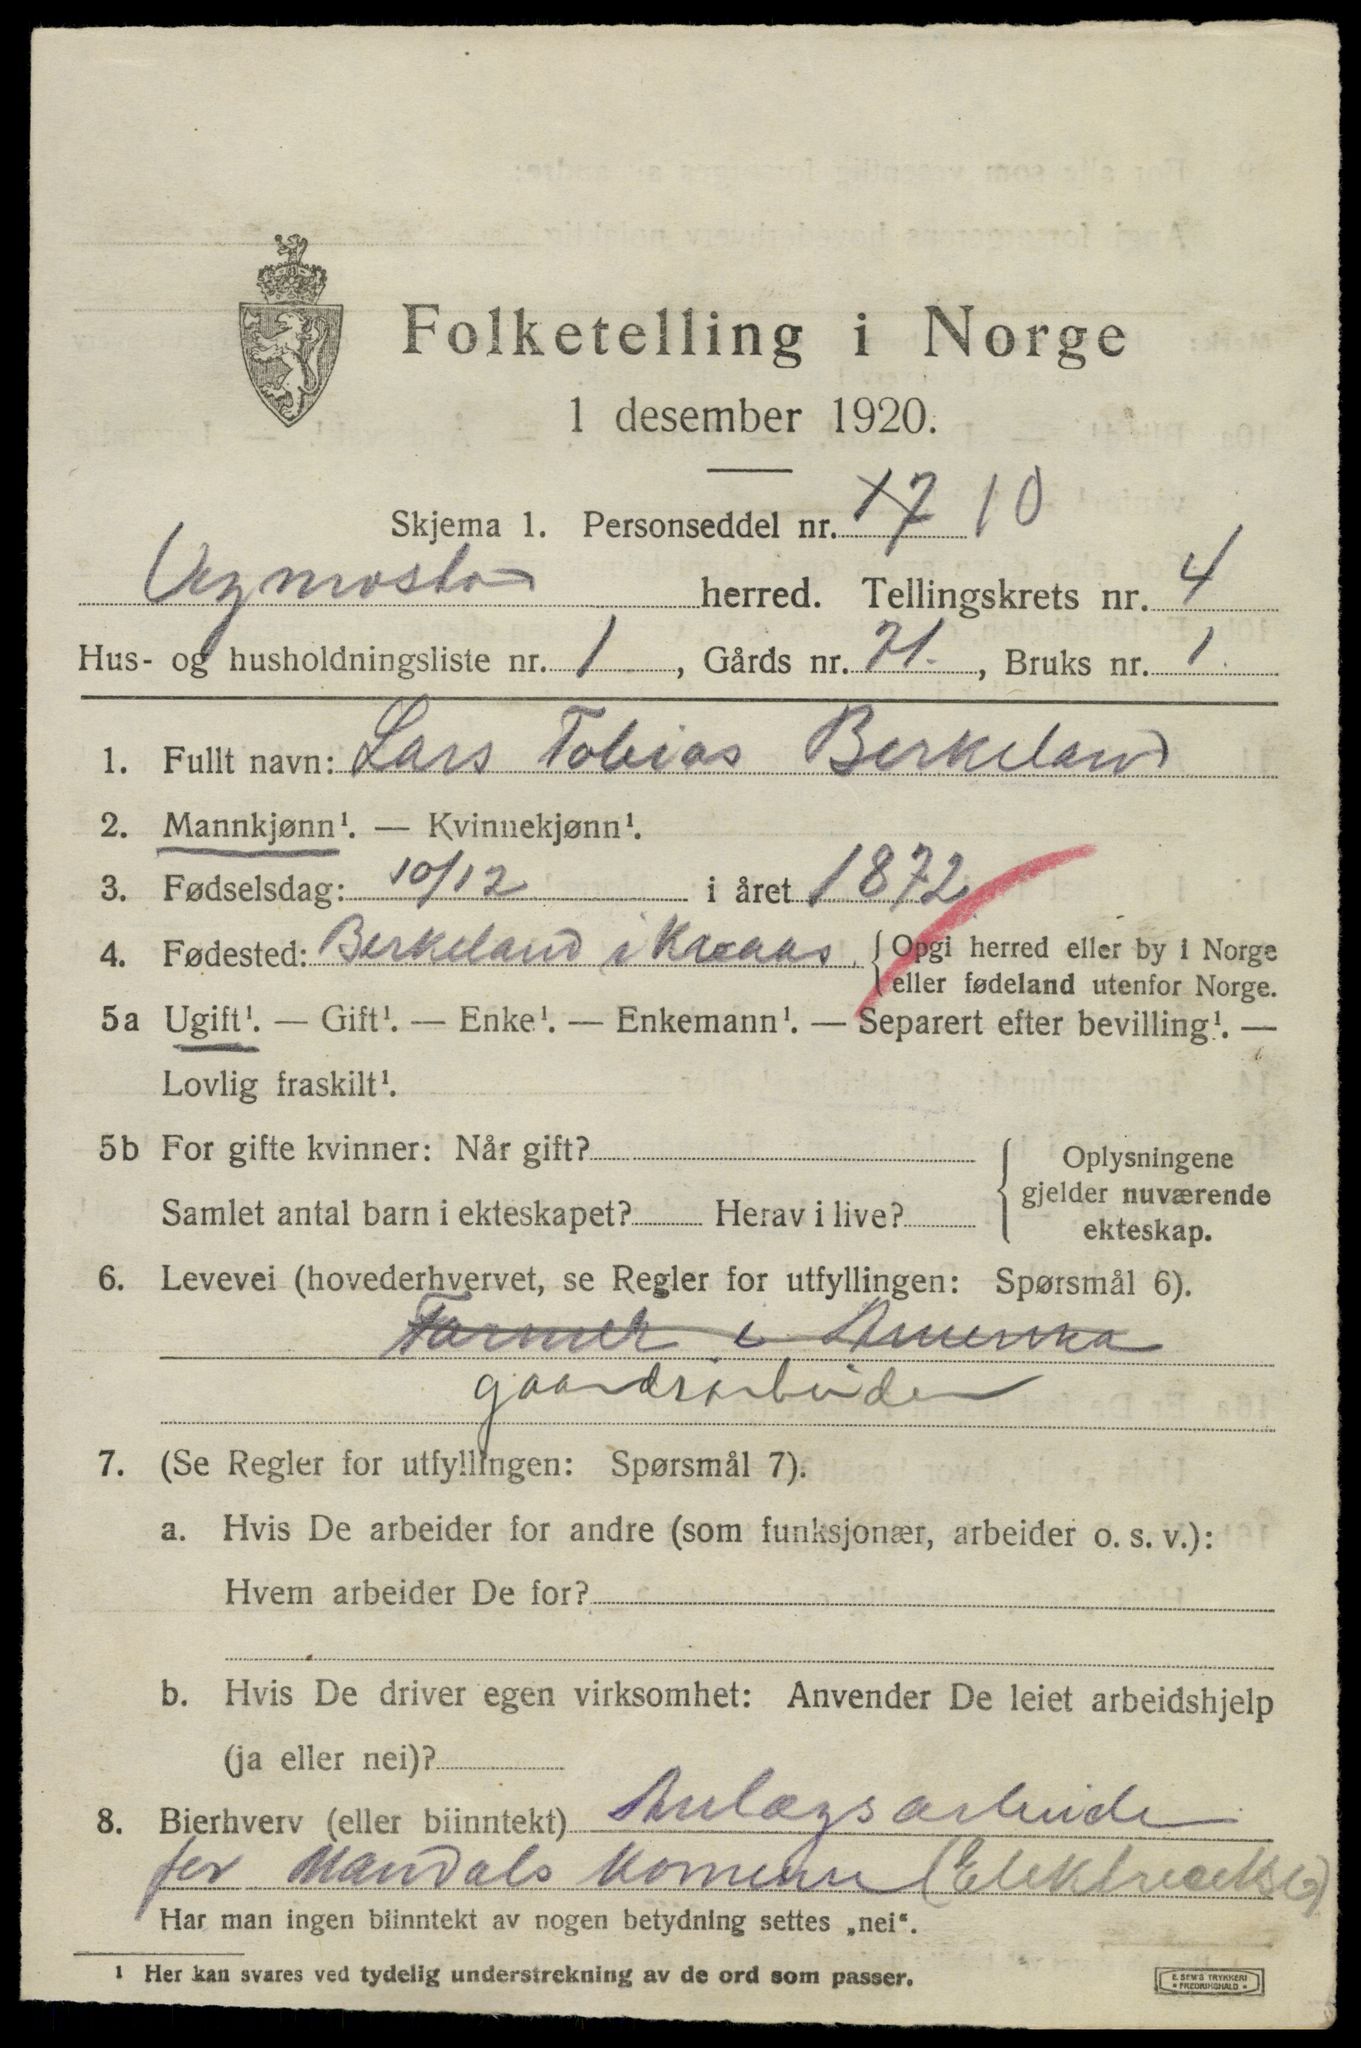 Folketelling i Norge
1 desember 1920.
Skjema 1. Personseddel nr. 17 10
herred. Tellingskrets nr. 4
Hus- og husholdningsliste nr. 1, Gårds nr. 71., Bruks nr. 1.
1. Fullt navn: Lars Tobias Berkeland
2. Mannkjønn¹. — Kvinnekjønn¹.
3. Fødselsdag: 10/12 i året 1872
4. Fødested: Berkeland i {Opgi herred eller by i Norge
eller fødeland utenfor Norge.
5a Ugift¹. — Gift¹. — Enke¹. — Enkemann¹. — Separert efter bevilling¹. —
Lovlig fraskilt¹.
5b For gifte kvinner: Når gift?
Samlet antal barn i ekteskapet? Herav i live?
Oplysningene
gjelder nuværende
ekteskap.
6. Levevei (hovederhvervet, se Regler for utfyllingen: Spørsmål 6).
Farmer i Amerika
gaardsarbeider
7. (Se Regler for utfyllingen: Spørsmål 7).
a. Hvis De arbeider for andre (som funksjonær, arbeider o. s. v.):
Hvem arbeider De for?
b. Hvis De driver egen virksomhet: Anvender De leiet arbeidshjelp
(ja eller nei)?
8. Bierhverv (eller biinntekt) Anlægsarbeide
for Mandals Komune
Har man ingen biinntekt av nogen betydning settes „nei“.
¹ Her kan svares ved tydelig understrekning av de ord som passer.
E. SEM'S TRYKKERI
FREDRIKSHALD